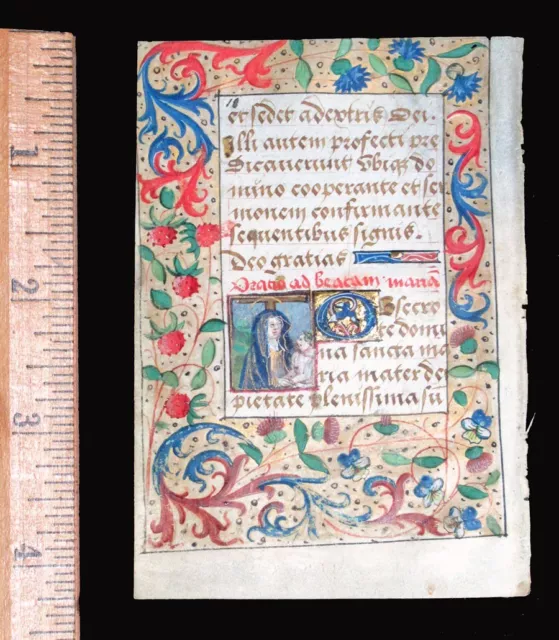 10
et sedet adextris Dei.
Illi autem profecti pre
Dicaverunt Vbiqz do
mino cooperante et ser
monem confirmante
sequentibus signis.
Deo gratias
Oratio ad beatam mariā
Obsecro
te domi
na sancta ma
ria mater de
pietate plenissima su
1
2
3
4